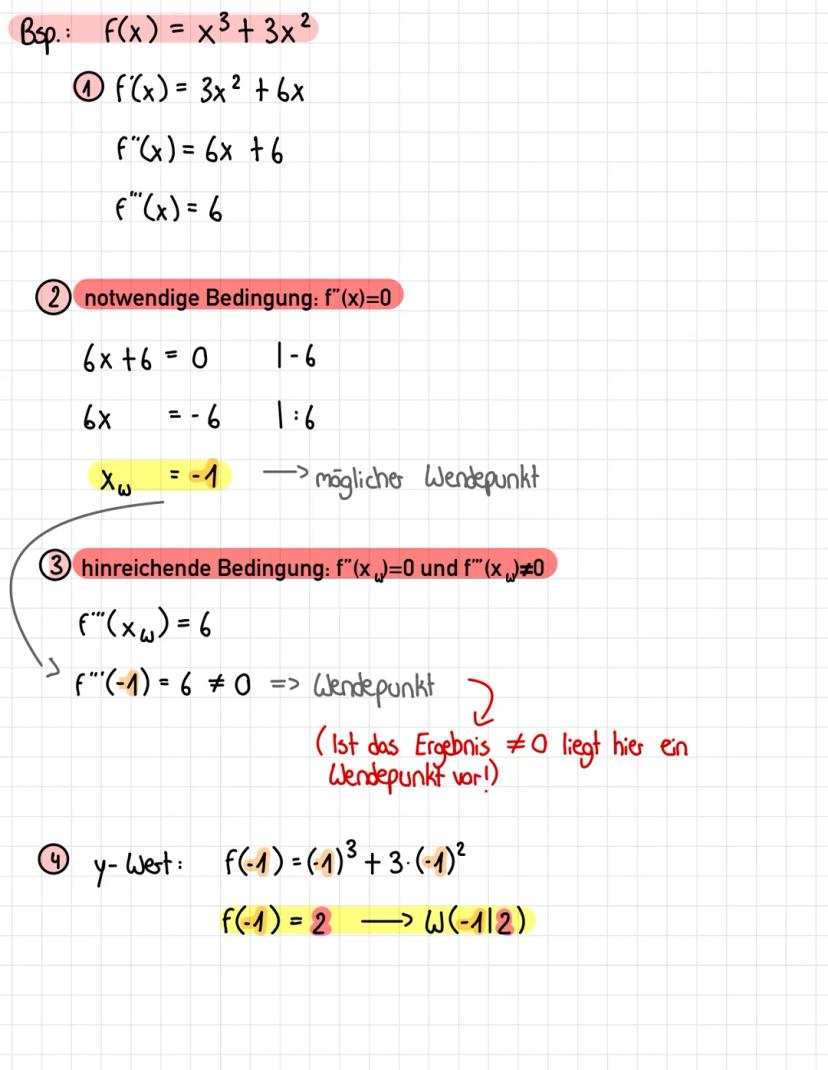 Bsp.: f(x) = x³ + 3x²
① f'(x) = 3x² + 6x
f''(x) = 6x + 6
f'''(x) = 6
② notwendige Bedingung: f''(x)=0
6x + 6 = 0 | - 6
6x = - 6 | : 6
x_w = -1 → möglicher Wendepunkt
③ hinreichende Bedingung: f''(x_w)=0 und f'''(x_w)≠0
f'''(x_w) = 6
f'''(-1) = 6 ≠ 0 => Wendepunkt
(Ist das Ergebnis ≠ 0 liegt hier ein
Wendepunkt vor!)
④ y-Wert: f(-1) = (-1)³ + 3·(-1)²
f(-1) = 2 → W(-1|2)